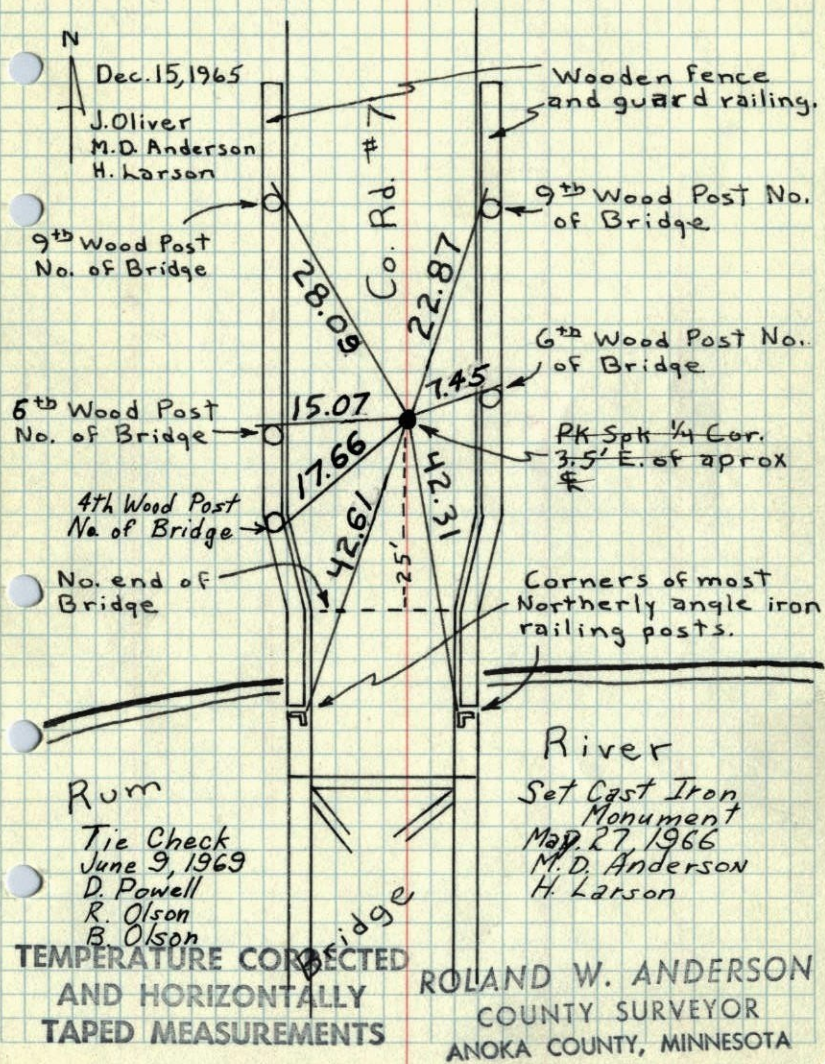 N
Dec. 15, 1965
J. Oliver
M.D. Anderson
H. Larson
Wooden fence
and guard railing.
Co. Rd. #7
9th Wood Post
No. of Bridge
9th Wood Post No.
of Bridge
28.09
22.87
6th Wood Post No.
of Bridge
7.45
15.07
17.66
42.61
42.31
25'
Wood Post
No. of Bridge
PK Spk 1/4 Cor.
3.5' E. of aprox
℄
4th Wood Post
No. of Bridge
No. end of
Bridge
Corners of most
Northerly angle iron
railing posts.
Rum
River
Tie Check
June 9, 1969
D. Powell
R. Olson
B. Olson
Set Cast Iron
Monument
27, 1966
M.D. Anderson
H. Larson
Bridge
TEMPERATURE CORRECTED
AND HORIZONTALLY
TAPED MEASUREMENTS
ROLAND W. ANDERSON
COUNTY SURVEYOR
ANOKA COUNTY, MINNESOTA